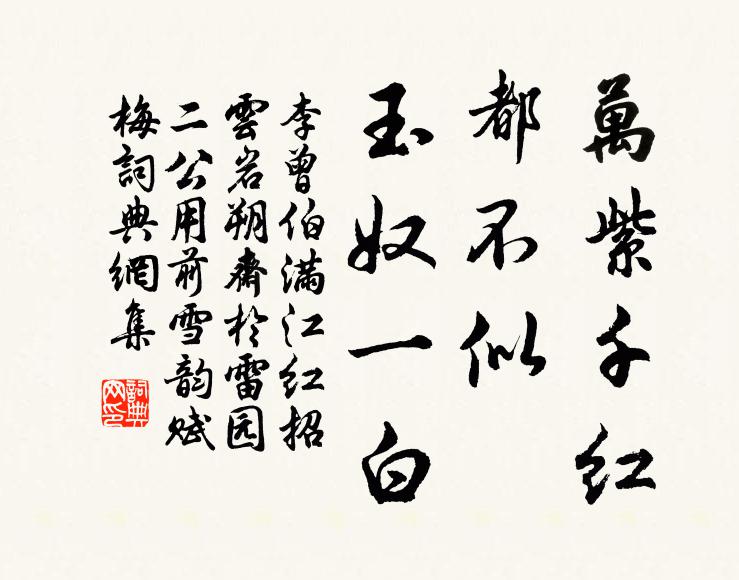 萬紫千红
都不似
玉奴一白
李曾伯满江红招
雲岩朔齋於雷园
二公用前雪韵赋
梅詞典網集
詞典网印